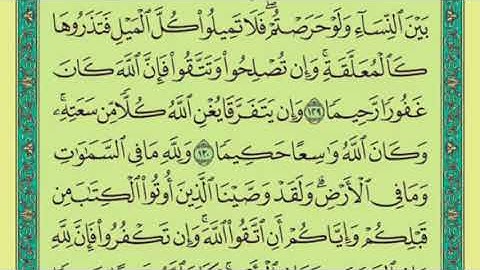 بَيْنَ ٱلنِّسَآءِ وَلَوْ حَرَصْتُمْ ۖ فَلَا تَمِيلُوا۟ كُلَّ ٱلْمَيْلِ فَتَذَرُوهَا
كَٱلْمُعَلَّقَةِ ۚ وَإِن تُصْلِحُوا۟ وَتَتَّقُوا۟ فَإِنَّ ٱللَّهَ كَانَ
غَفُورًا رَّحِيمًا ١٢٩ وَإِن يَتَفَرَّقَا يُغْنِ ٱللَّهُ كُلًّا مِّن سَعَتِهِۦ ۚ
وَكَانَ ٱللَّهُ وَٰسِعًا حَكِيمًا ١٣٠ وَلِلَّهِ مَا فِى ٱلسَّمَٰوَٰتِ
وَمَا فِى ٱلْأَرْضِ ۗ وَلَقَدْ وَصَّيْنَا ٱلَّذِينَ أُوتُوا۟ ٱلْكِتَٰبَ مِن
قَبْلِكُمْ وَإِيَّاكُمْ أَنِ ٱتَّقُوا۟ ٱللَّهَ ۚ وَإِن تَكْفُرُوا۟ فَإِنَّ لِلَّهِ